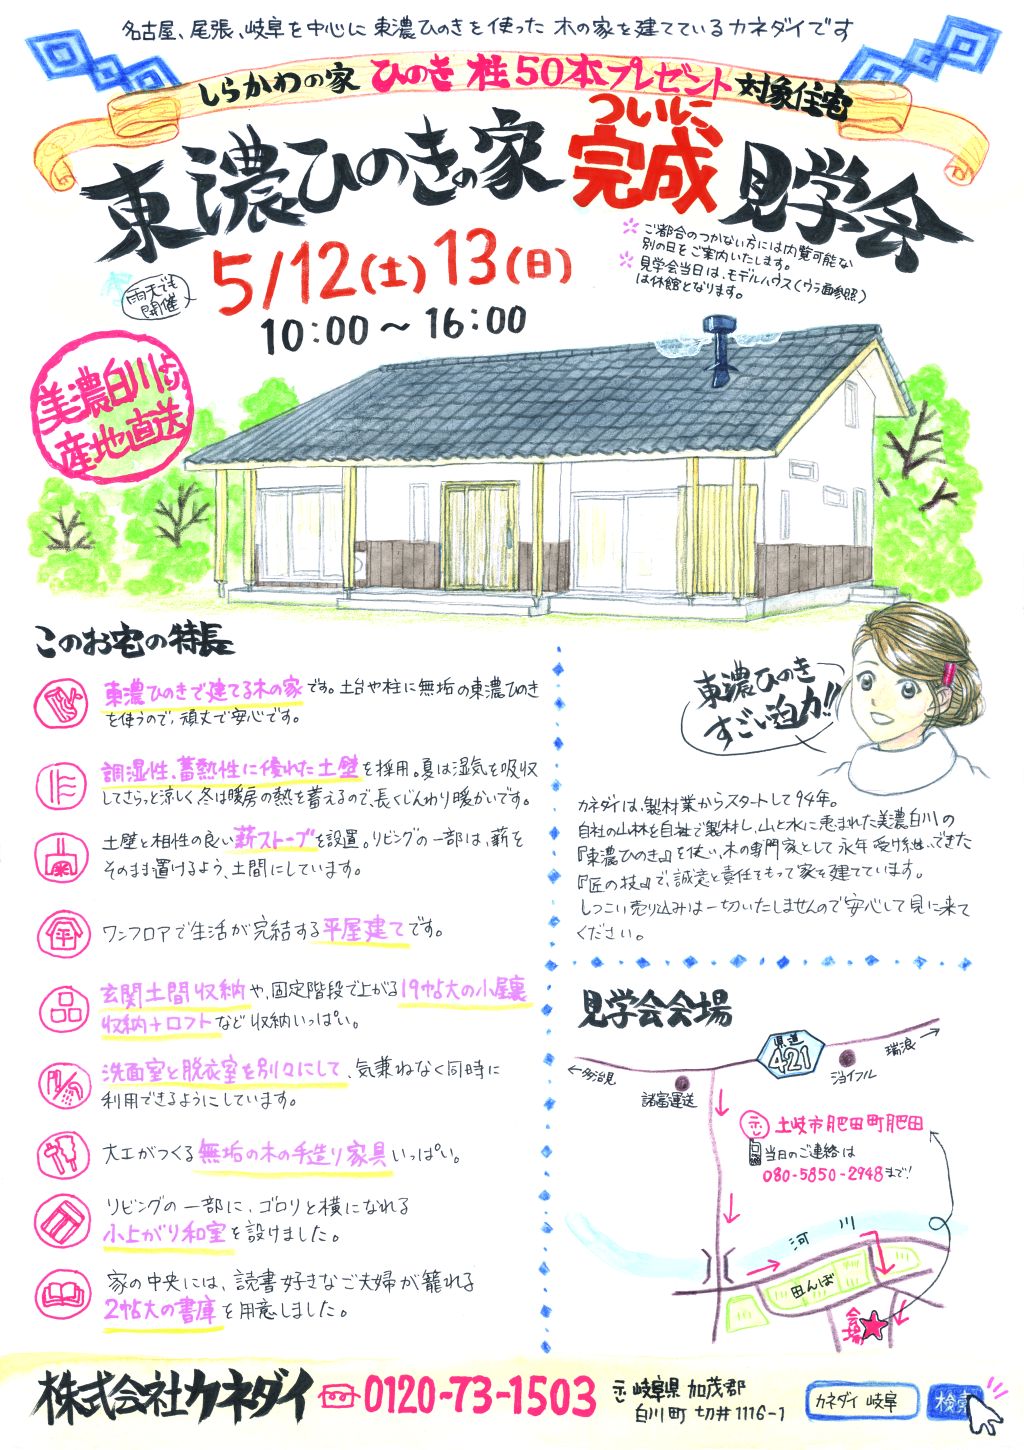 名古屋、尾張、岐阜を中心に東濃ひのきを使った木の家を建てているカネダイです
しらかわの家 ひのき 柱50本プレゼント 対象住宅
東濃ひのきの家 ついに完成 見学会
5/12(土) 13(日)
10:00〜16:00
雨天でも
開催
ご都合のつかない方には内覧可能な
別の日をご案内いたします。
見学会当日は、モデルハウス(ウラ面参照)
は休館となります。
美濃白川より
産地直送
このお宅の特長
東濃ひのきで建てる木の家です。土台や柱に無垢の東濃ひのき
を使うので、頑丈で安心です。
調湿性、蓄熱性に優れた土壁を採用。夏は湿気を吸収
してさらっと涼しく冬は暖房の熱を蓄えるので、長くじんわり暖かいです。
土壁と相性の良い薪ストーブを設置。リビングの一部は、薪を
そのまま置けるよう、土間にしています。
ワンフロアで生活が完結する平屋建てです。
玄関土間収納や、固定階段で上がる19帖大の小屋裏
収納+ロフトなど収納いっぱい。
洗面室と脱衣室を別々にして、気兼ねなく同時に
利用できるようにしています。
大工がつくる無垢の木の手造り家具いっぱい。
リビングの一部に、ゴロリと横になれる
小上がり和室を設けました。
家の中央には、読書好きなご夫婦が籠れる
2帖大の書庫を用意しました。
東濃ひのき
すごい迫力!!
カネダイは、製材業からスタートして94年。
自社の山林を自社で製材し、山と水に恵まれた美濃白川の
『東濃ひのき』を使い、木の専門家として永年受け継いできた
『匠の技』で、誠意と責任でもって家を建てています。
しつこい売り込みは一切いたしませんので安心して見に来て
ください。
見学会会場
県道
421
瑞浪
多治見
諸富運送
ジョイフル
示 土岐市肥田町肥田
当日のご連絡は
080-5850-2948まで!
河川
田んぼ
会場
株式会社カネダイ 0120-73-1503
示 岐阜県 加茂郡
白川町 切井1116-1
カネダイ 岐阜 検索